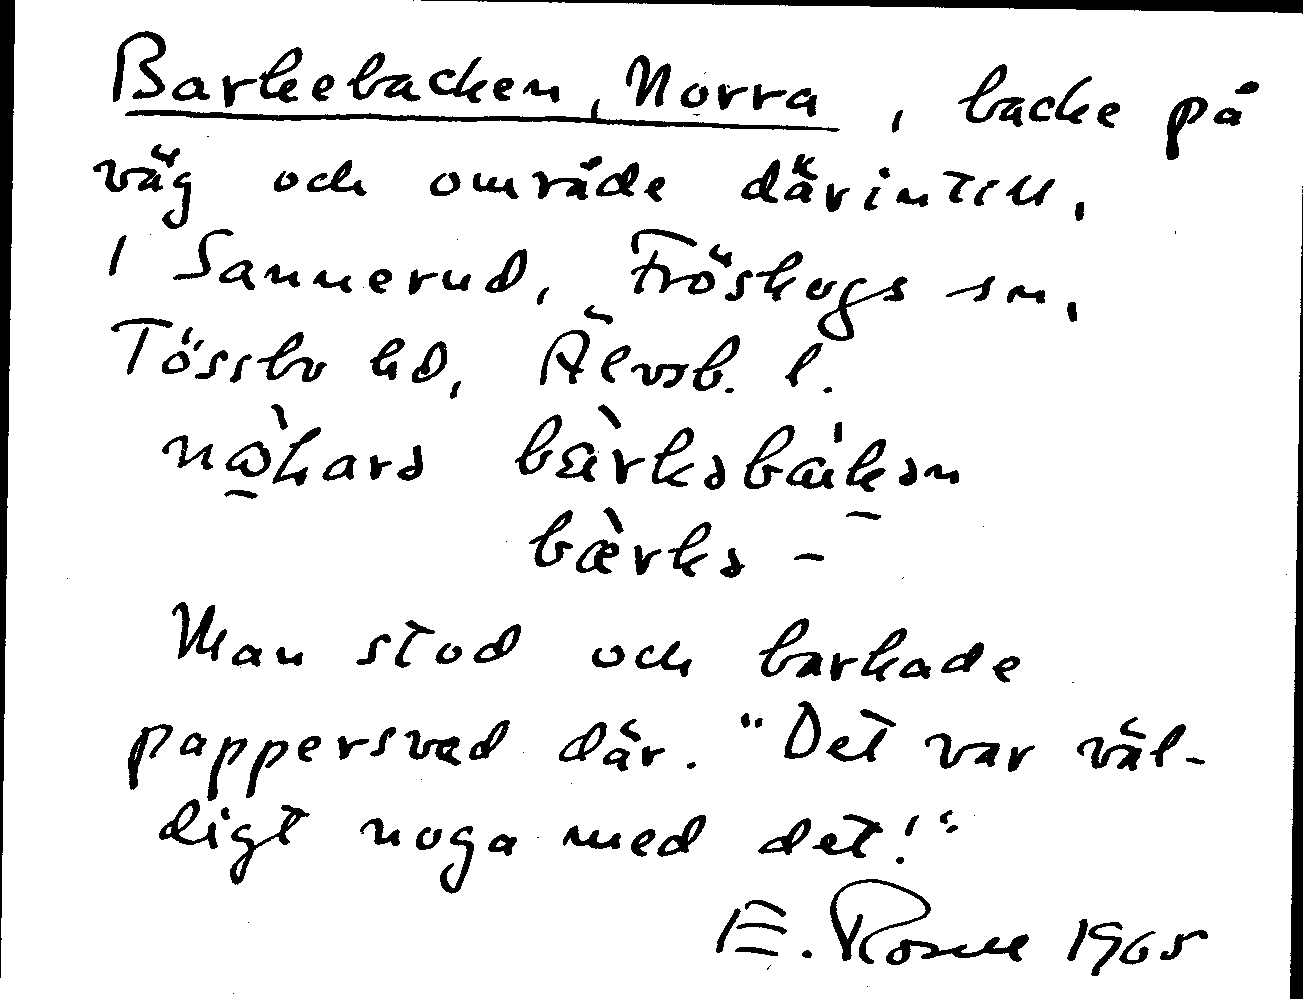 Barkebacken, Norra, backe på
väg och område därintill,
i Sannerud, Fröskogs sn,
Tössbo hd, Älvsb. l.
bærkə -
Man stod och barkade
pappersved där. "Det var väl-
digt noga med det!"
E. Rosell 1965